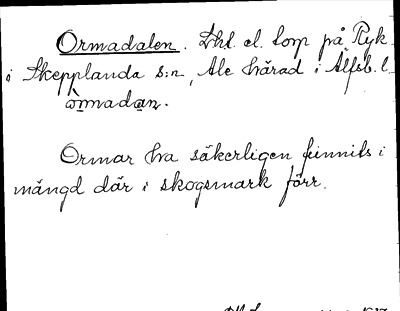 Ormadalen. Dhl. el. torp på Ryk
i Skepplanda s:n, Ale härad i Älfsb. l.
òrmadạn.
Ormar ha säkerligen funnits i
mängd där i skogsmark förr.